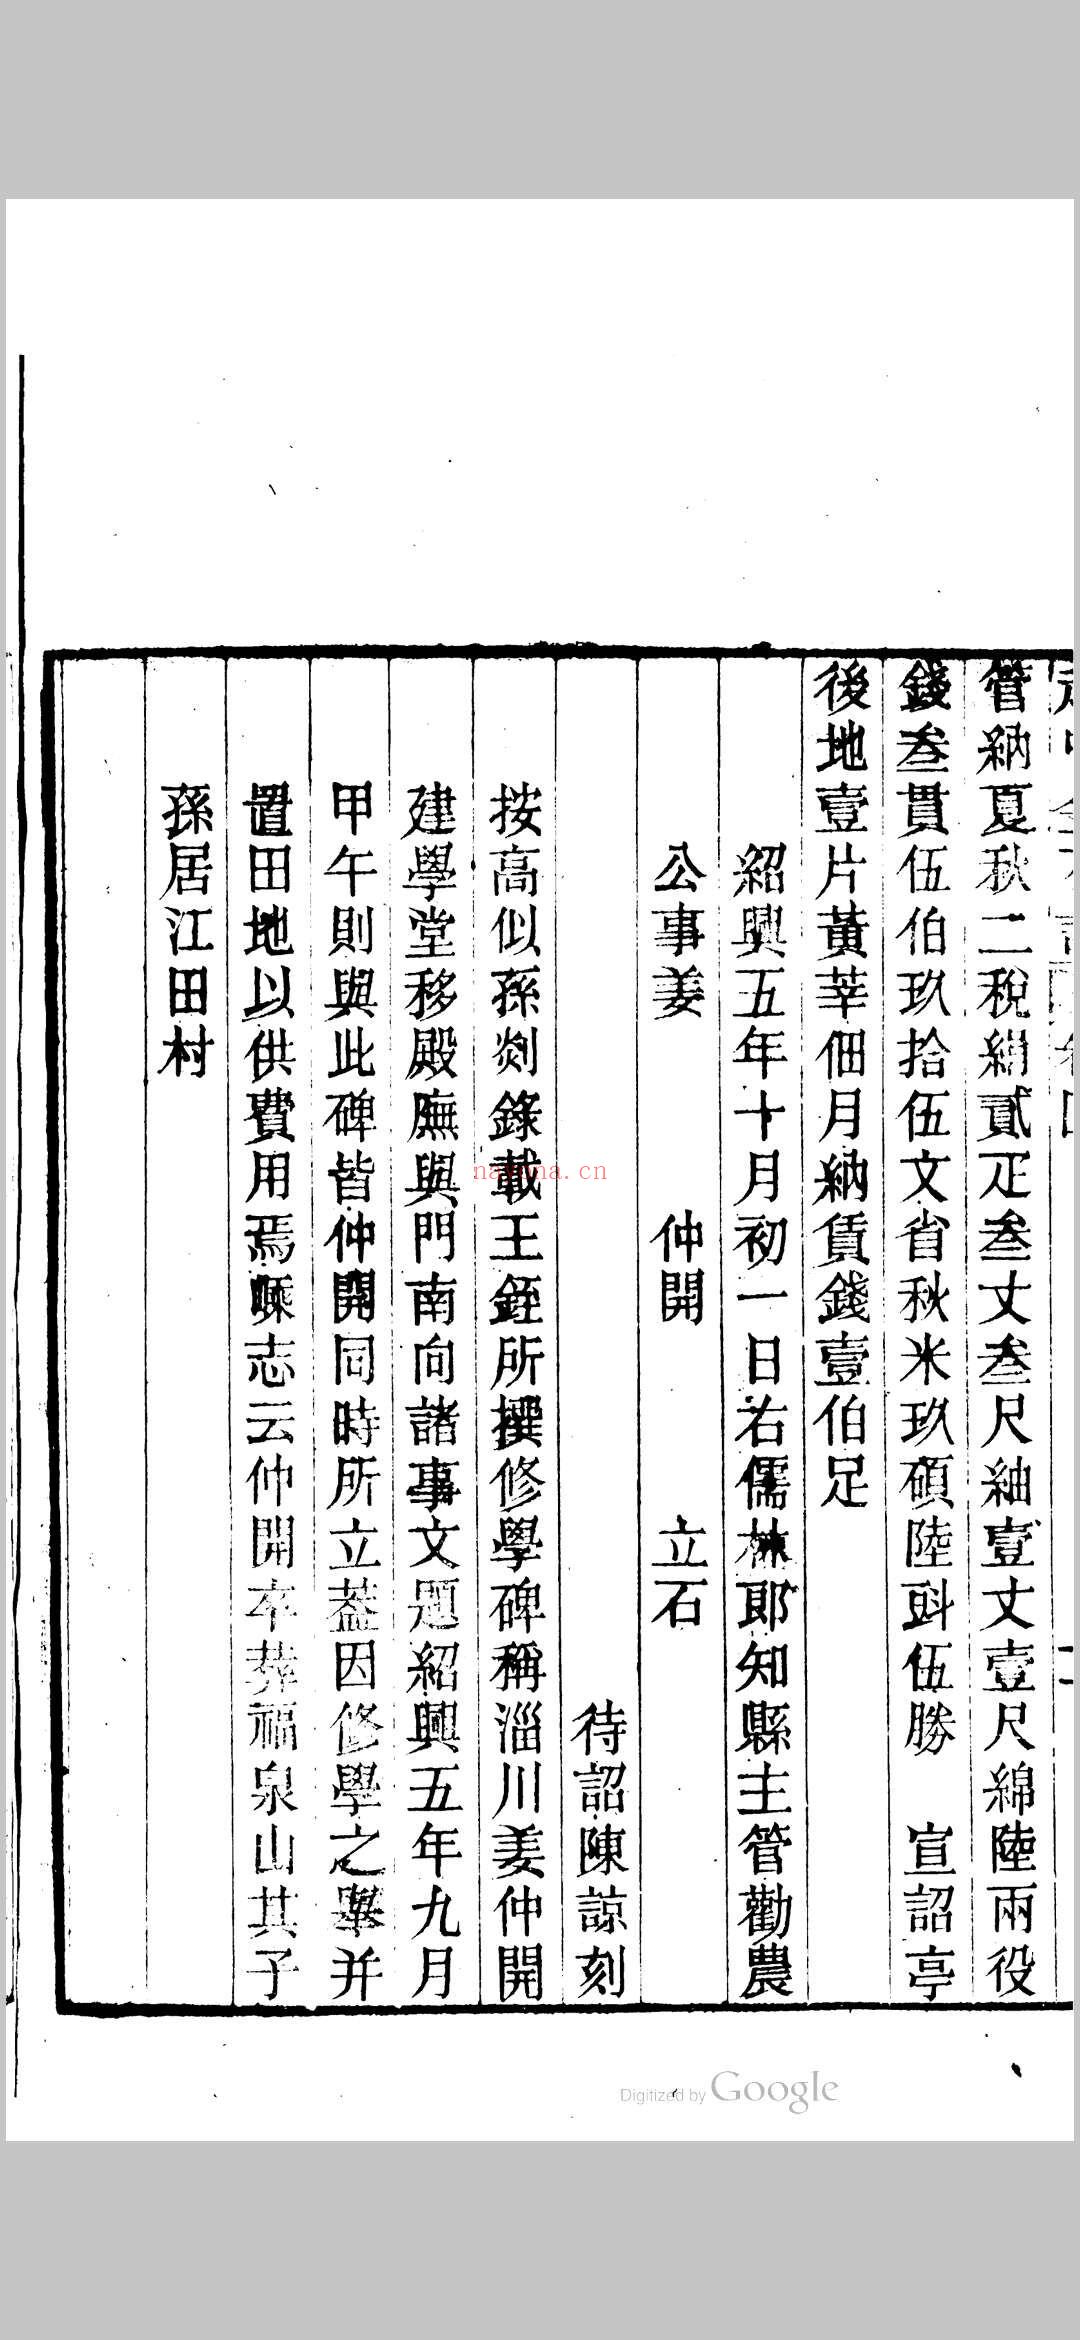 管納夏秋二稅絹貳疋叁丈叁尺紬壹丈壹尺綿陸兩役
錢叁貫伍伯玖拾伍文省秋米玖碩陸㪷伍勝　宣詔亭
後地壹片黃莘佃月納賃錢壹伯足
紹興五年十月初一日右儒林郎知縣主管勸農
公事姜　仲開　立石
待詔陳諒刻
按高似孫剡錄載王銍所撰修學碑稱淄川姜仲開
建學堂移殿廡與門南向諸事文題紹興五年九月
甲午則與此碑皆仲開同時所立葢因修學之舉并
置田地以供費用焉嵊志云仲開卒葬福泉山其子
孫居江田村
nayona.cn
Digitized by Google